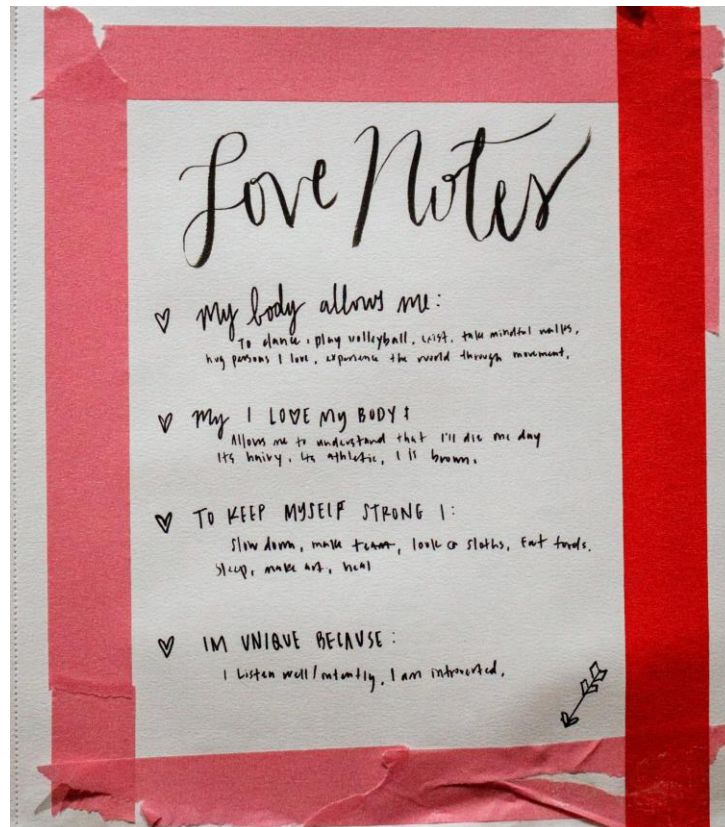 Love Notes
My body allows me:
To dance, play volleyball, exist, take mindful walks,
hug persons I love, experience the world through movement.
My I LOVE My BODY:
Allows me to understand that I'll die one day
Its hairy, its athletic, & is brown.
TO KEEP MYSELF STRONG I:
Slow down, make, look @ sloths, Eat foods.
Sleep, make art, heal
IM UNIQUE BECAUSE:
I Listen well/intently, I am introverted.